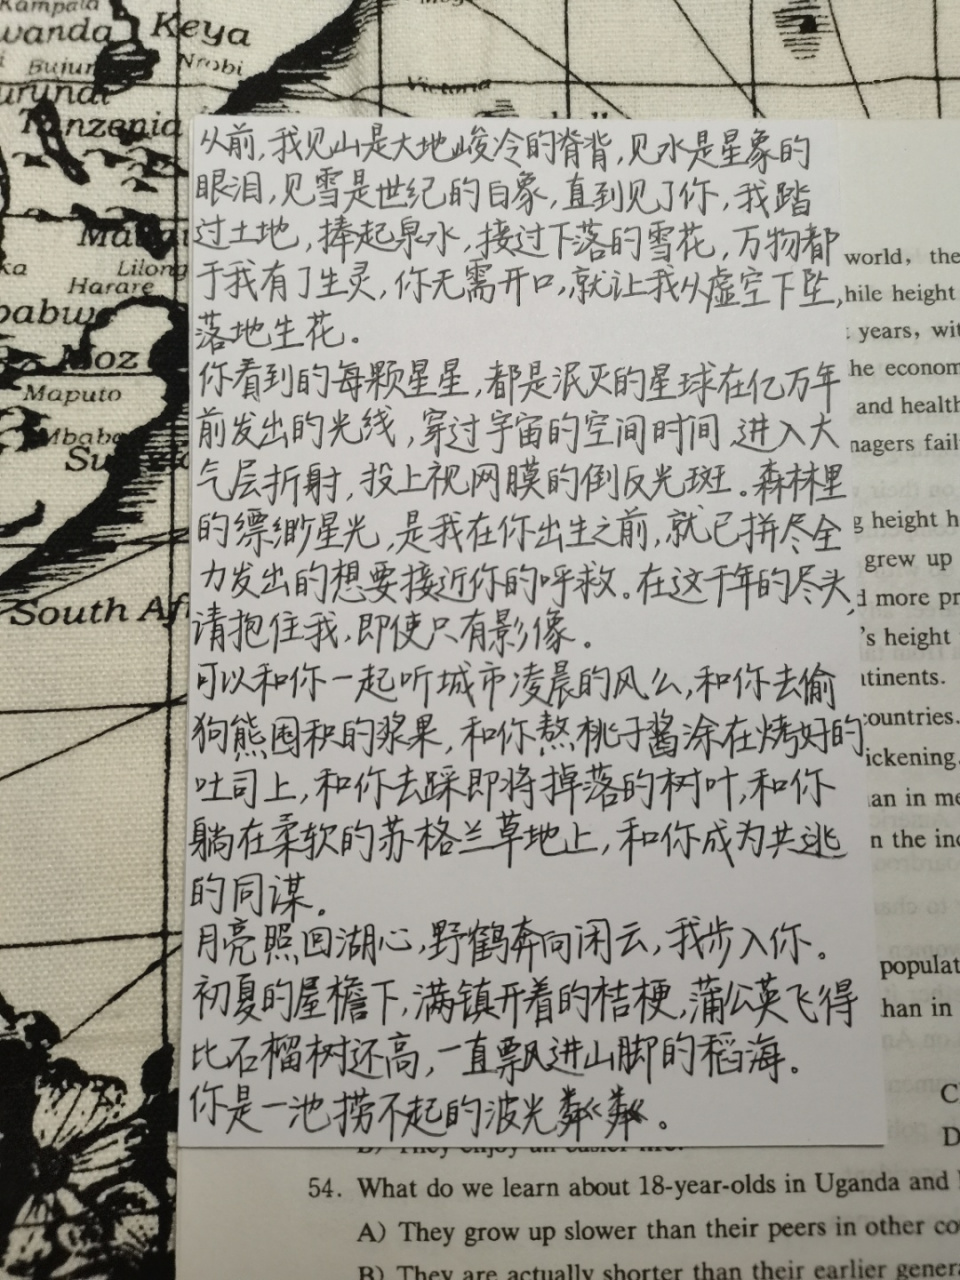 Kampala
wanda
Keya
Bujum
Nrobi
urundi
Victoria
Tanzenia
Lilong
Harare
babw
Moz
Maputo
Mbab
South Afr
从前,我见山是大地峻冷的脊背,见水是星象的
眼泪,见雪是世纪的白象,直到见了你,我踏
过土地,捧起泉水,接过下落的雪花,万物都
于我有了生灵,你无需开口,就让我从虚空下坠,
落地生花。
你看到的每颗星星,都是泯灭的星球在亿万年
前发出的光线,穿过宇宙的空间时间,进入大
气层折射,投上视网膜的倒反光斑。森林里
的缥缈星光,是我在你出生之前,就已拼尽全
力发出的想要接近你的呼救。在这千年的尽头,
请抱住我,即使只有影像。
可以和你一起听城市凌晨的风么,和你去偷
狗熊囤积的浆果,和你熬桃子酱涂在烤好的
吐司上,和你去踩即将掉落的树叶,和你
躺在柔软的苏格兰草地上,和你成为共逃
的同谋。
月亮照回湖心,野鹤奔向闲云,我步入你。
初夏的屋檐下,满镇开着的桔梗,蒲公英飞得
比石榴树还高,一直飘进山脚的稻海。
你是一池捞不起的波光粼粼。
world, the
hile height
years, wit
he econom
and health
nagers fail
g height h
grew up
d more pr
's height
ntinents.
countries.
ickening.
an in me
n the inc
populat
han in
C
D
B) They enjoy an easier life.
54. What do we learn about 18-year-olds in Uganda and
A) They grow up slower than their peers in other co
B) They are actually shorter than their earlier genera